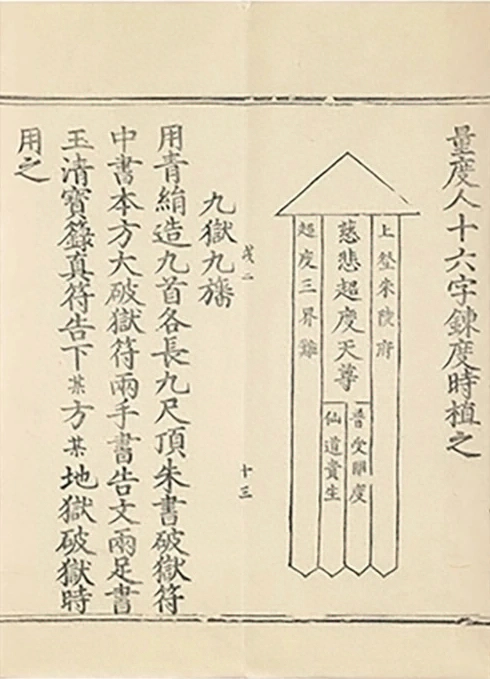 量度人十六字鍊度時植之
上登朱陵府
慈悲超度天尊
普受開度
仙道貴生
超度三界難
十三
九獄九旛
用青絹造九首各長九尺頂朱書破獄符
中書本方大破獄符兩手書告文兩足書
玉清寶籙真符告下某方某地獄破獄時
用之